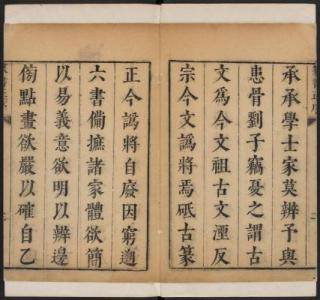 承承學士家莫辨予與
患骨劉子竊憂之謂古
文爲今文祖古文湮反
宗今文譌將焉砥古篆
正今譌將自廢因窮邉
六書備摭諸家體欲簡
以易義意欲明以辨邊
傍點畫欲嚴以確自乙